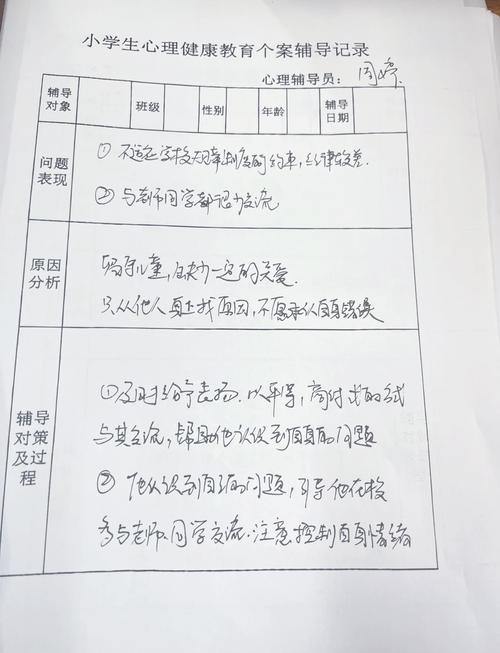 小学生心理健康教育个案辅导记录
心理辅导员：周婷
辅导对象 班级 性别 年龄 辅导日期
问题表现
①不适应学校规章制度的约束，纪律较差.
②与老师同学都很少交流
原因分析
留守儿童，缺少一定的关爱.
只从他人身上找原因，不愿承认自身错误
辅导对策及过程
①及时给予表扬.以平等，商讨式的方式
与其交流，帮助他认识到自身的问题
②他认识到自己的问题，引导他在校
多与老师.同学交流.注意控制自身情绪